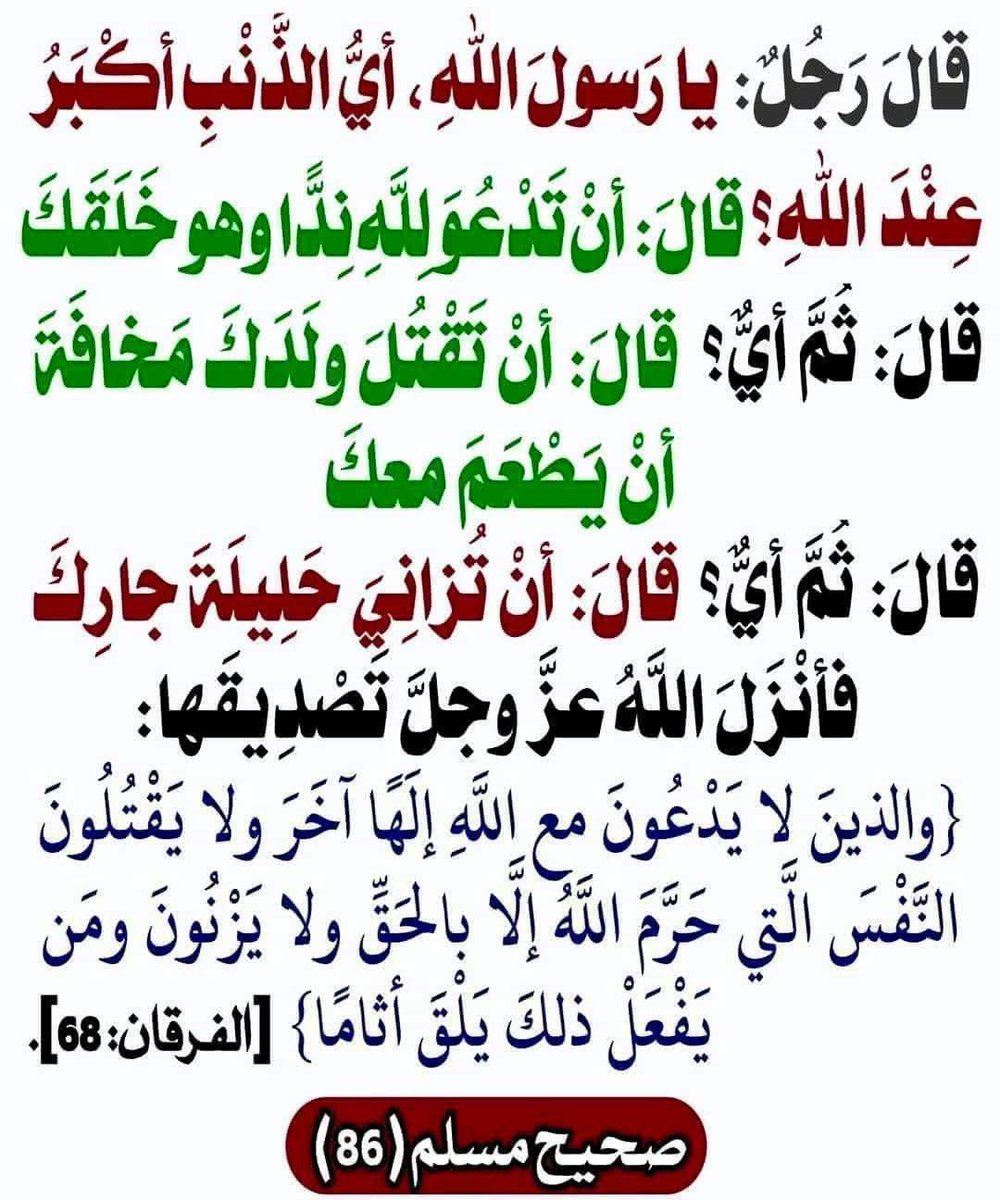 قالَ رَجُلٌ: يا رَسولَ اللهِ، أيُّ الذَّنْبِ أكْبَرُ
عِنْدَ اللهِ؟ قالَ: أنْ تَدْعُوَ لِلَّهِ نِدًّا وهو خَلَقَكَ
قالَ: ثُمَّ أيٌّ؟ قالَ: أنْ تَقْتُلَ ولَدَكَ مَخافَةَ
أنْ يَطْعَمَ معكَ
قالَ: ثُمَّ أيٌّ؟ قالَ: أنْ تُزانِيَ حَلِيلَةَ جارِكَ
فأنْزَلَ اللَّهُ عزَّ وجلَّ تَصْدِيقَها:
{والذينَ لا يَدْعُونَ مع اللَّهِ إلَهًا آخَرَ ولا يَقْتُلُونَ
النَّفْسَ الَّتي حَرَّمَ اللَّهُ إلَّا بالحَقِّ ولا يَزْنُونَ ومَن
يَفْعَلْ ذلكَ يَلْقَ أثامًا} [الفرقان: 68].
صحيح مسلم (86)